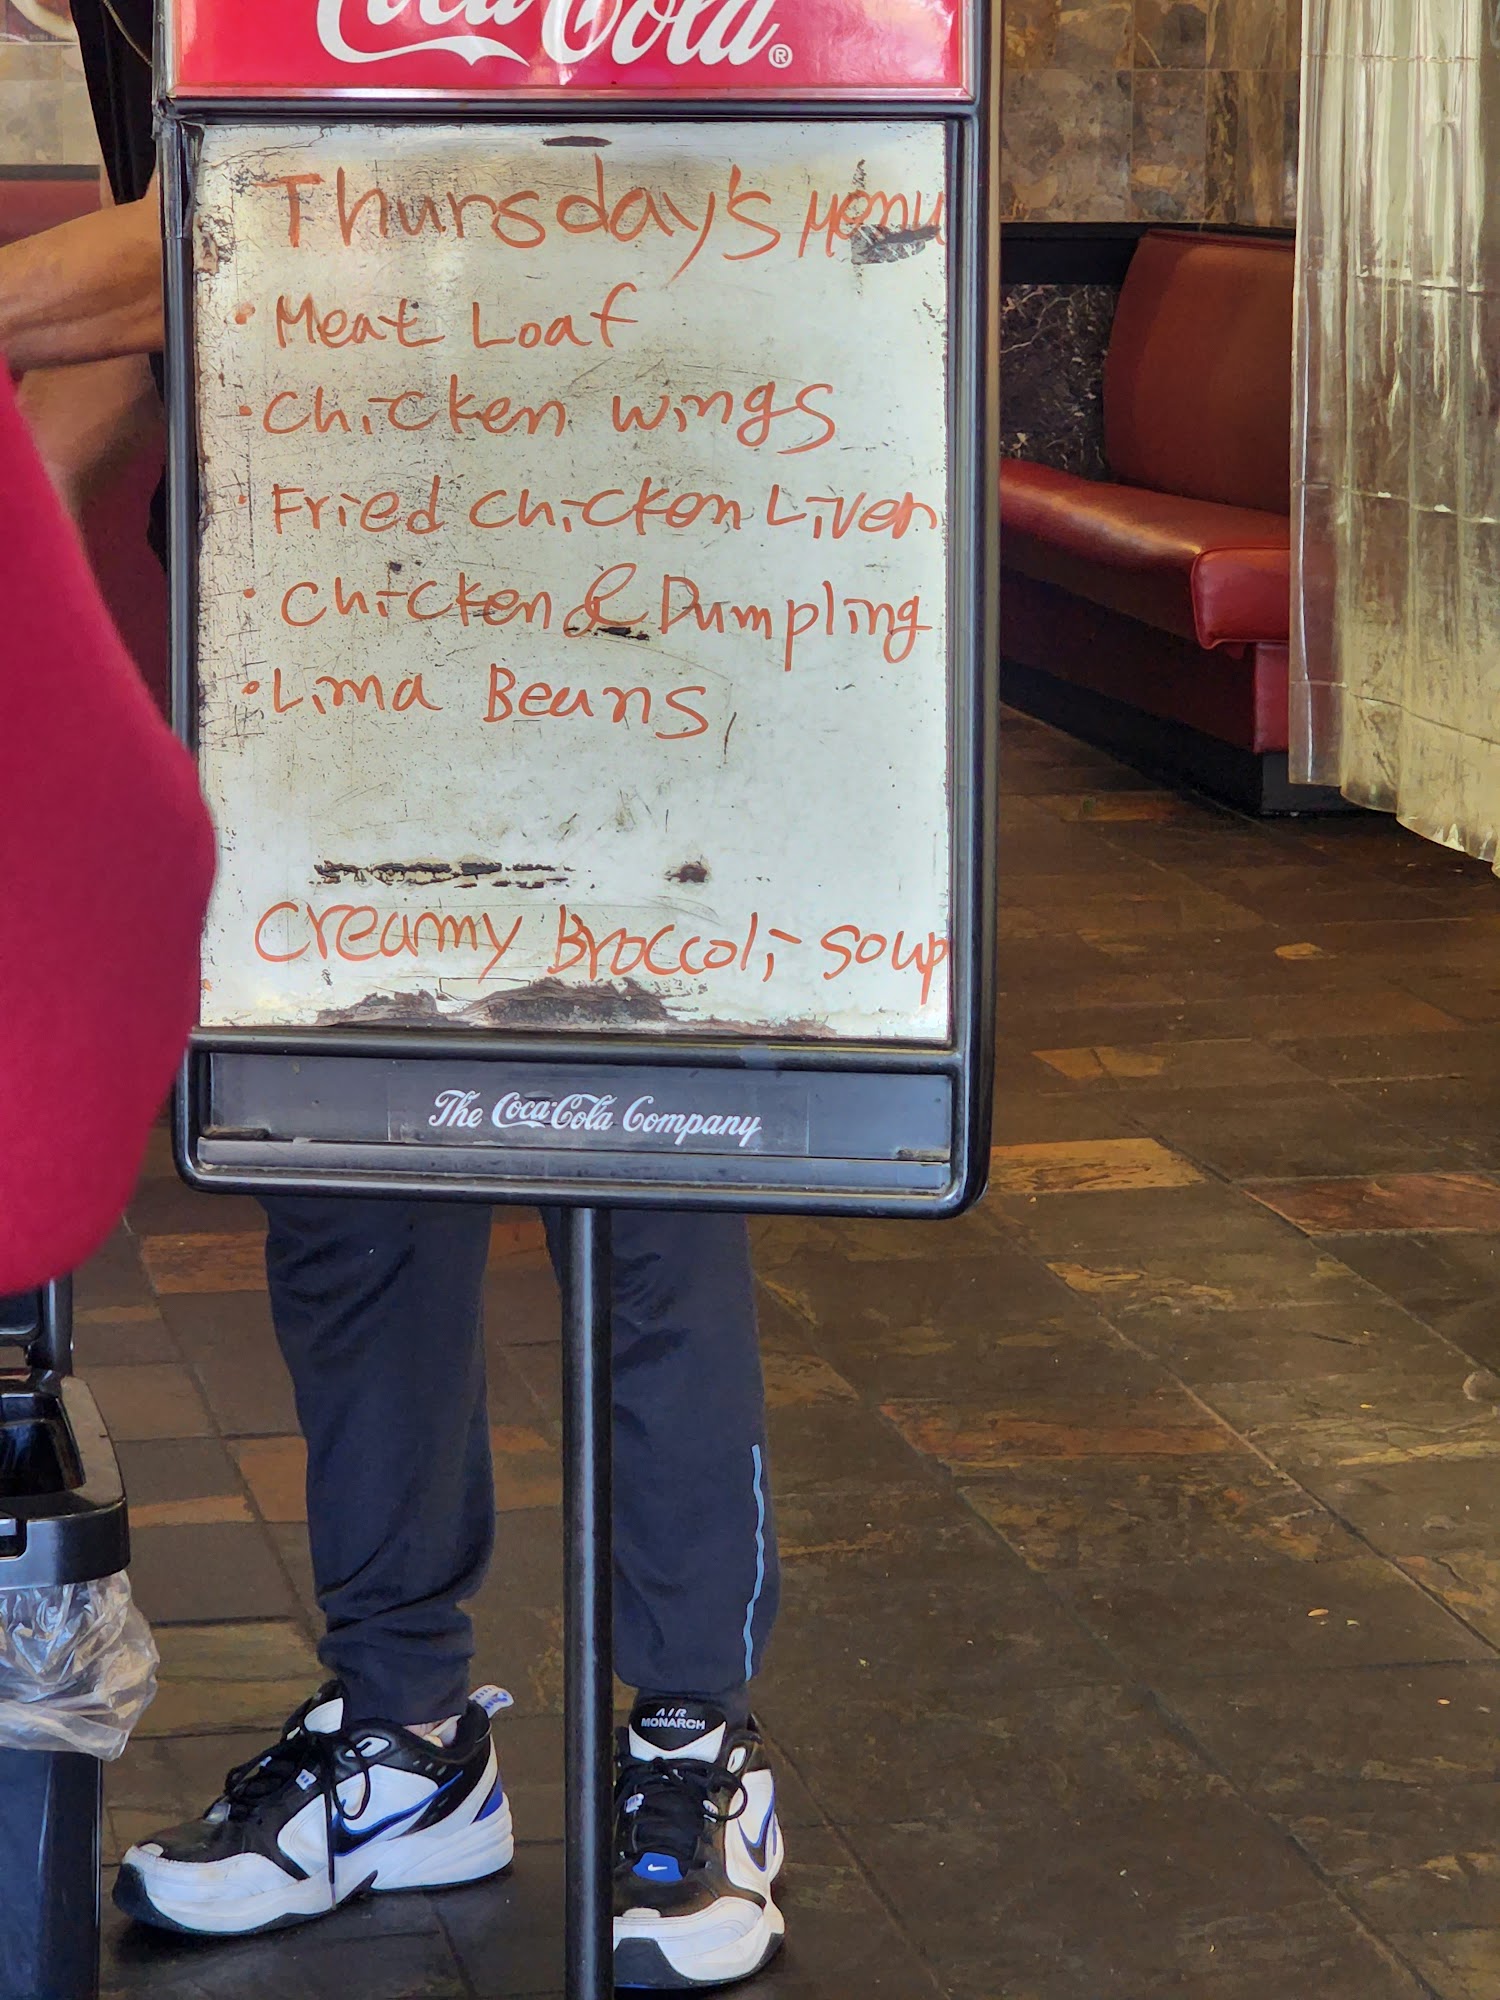 Coca-Cola®
Thursday's Menu
• Meat Loaf
• Chicken Wings
• Fried Chicken Liver
• Chicken & Dumpling
• Lima Beans,
Creamy Broccoli Soup
The Coca-Cola Company
AIR
MONARCH